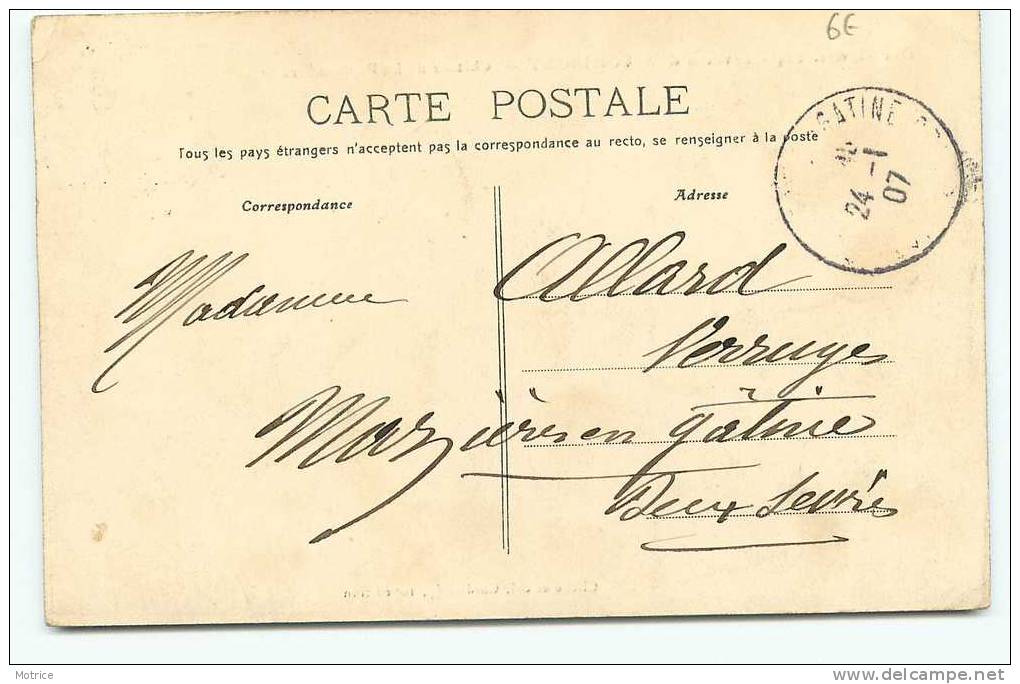 6€
CARTE POSTALE
Tous les pays étrangers n'acceptent pas la correspondance au recto, se renseigner à la poste
GATINE
24 -1
07
Correspondance
Adresse
Madame Allard
Verruyes
Mazières en gâtine
Deux Sèvres
Motrice
www.delcampe.net